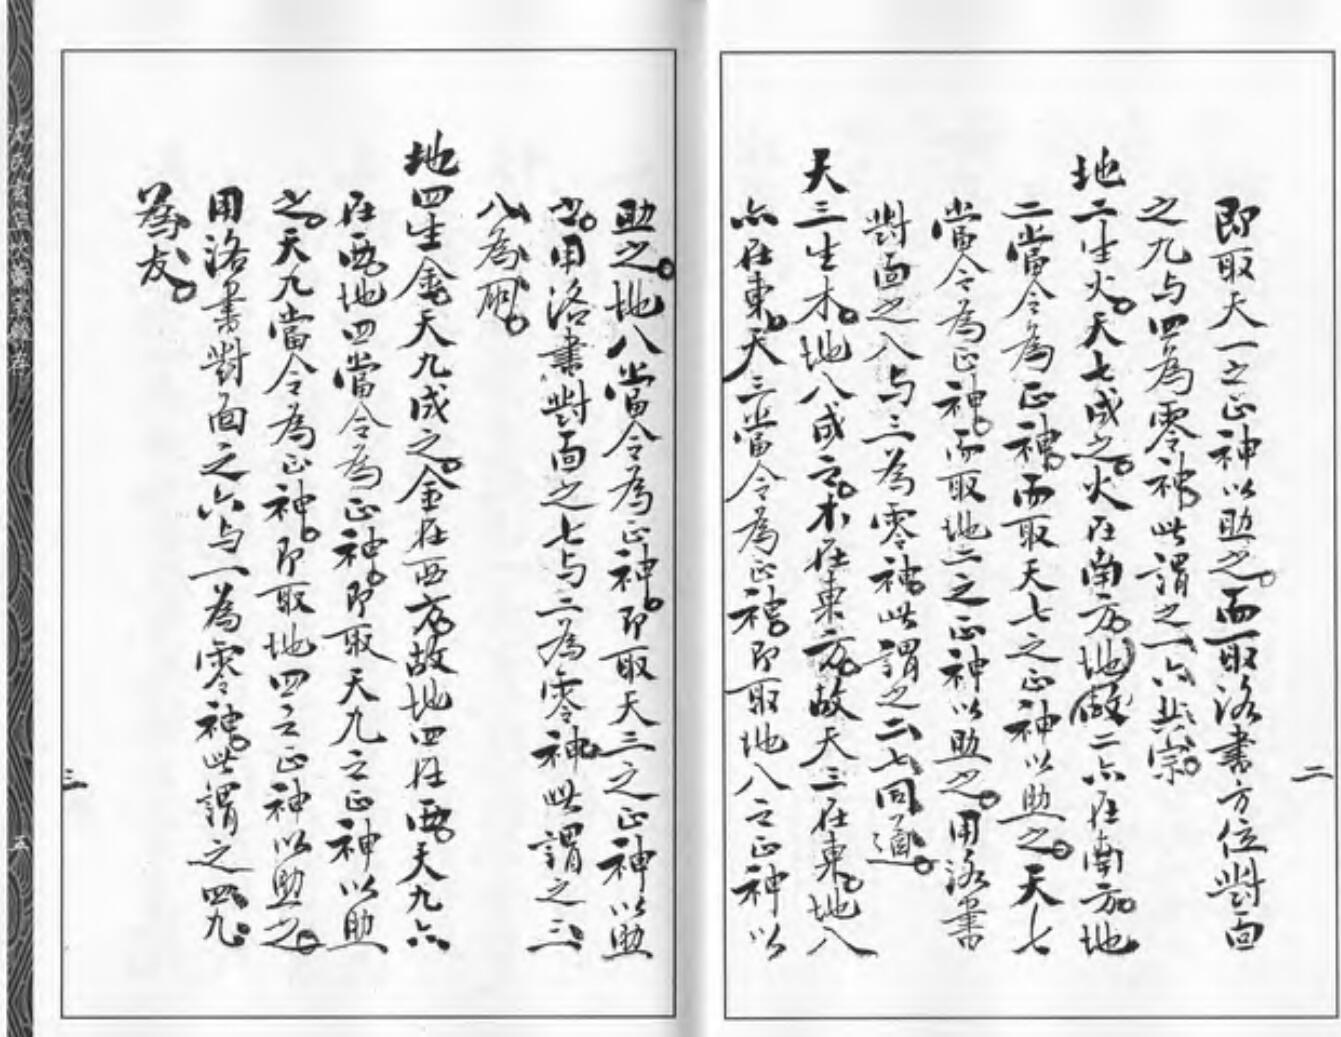 二
即取天一之正神以助之。而取洛書方位對面
之九与四為零神。此謂之一六共宗。
地二生火。天七成之。火在南方。地(故)二亦在南方。地
二當令為正神。而取天七之正神以助之。天七
當令為正神。而取地二之正神以助之。用洛書
對面之八与三為零神。此謂之二七同道。
天三生木。地八成之。木在東方。故天三在東。地八
亦在東。天三當令為正神。即取地八之正神以
助之。地八當令為正神。即取天三之正神以助
之。用洛書對面之七与二為零神。此謂之三
八為朋。
地四生金。天九成之。金在西方。故地四在西。天九亦
在西。地四當令為正神。即取天九之正神以助
之。天九當令為正神。即取地四之正神以助之。
用洛書對面之六与一為零神。此謂之四九
為友。
三
五